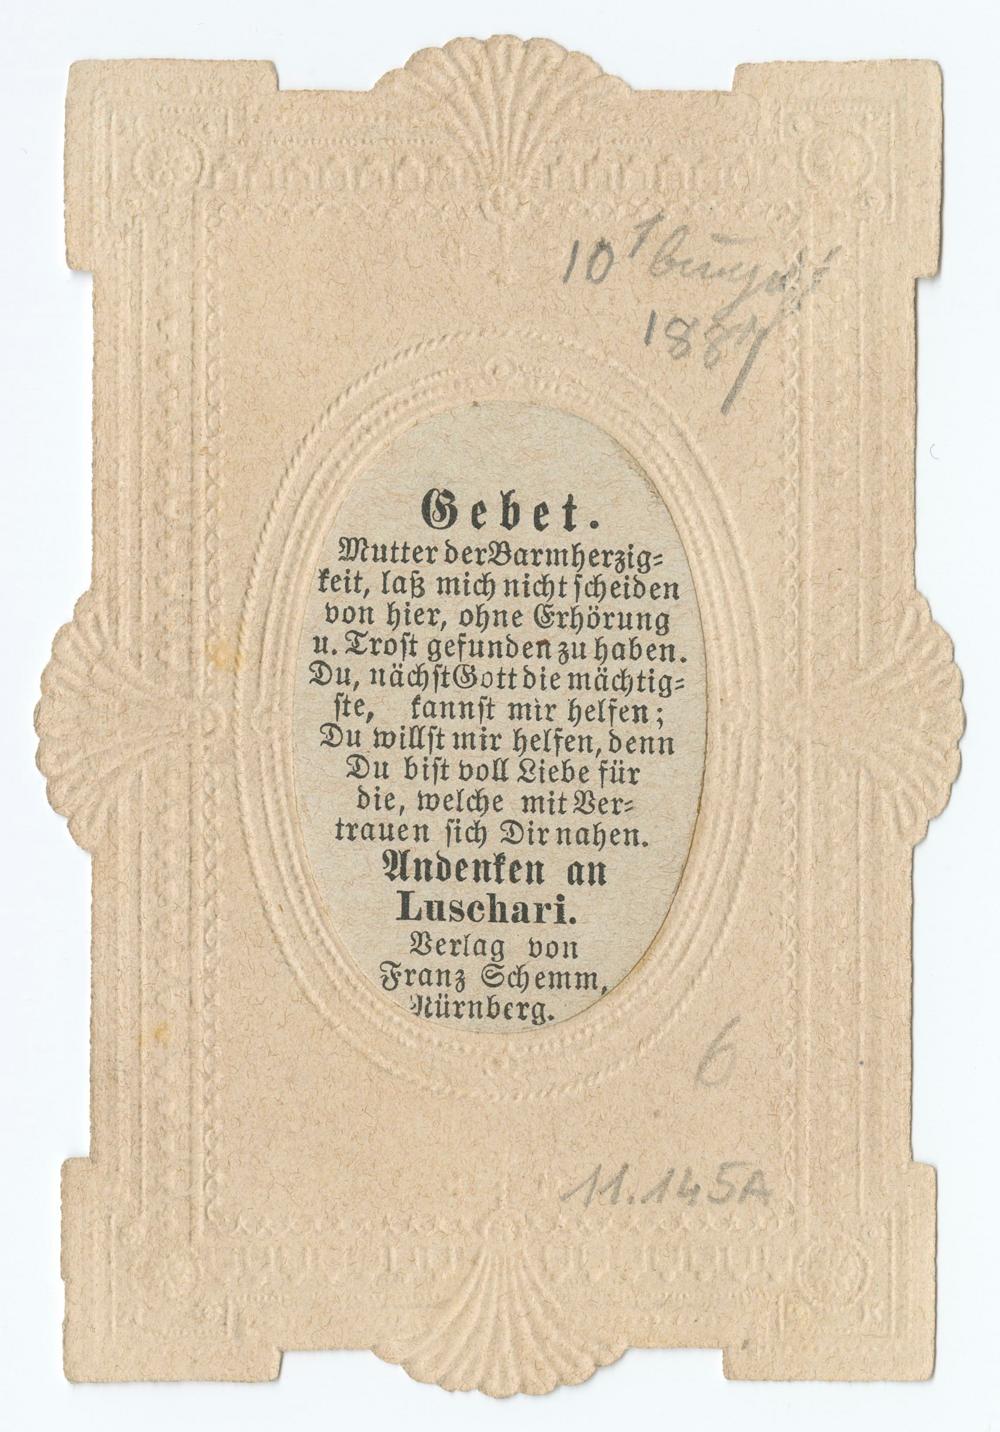 10
1887
Gebet.
Mutter der Barmherzig=
keit, laß mich nicht scheiden
von hier, ohne Erhörung
u. Trost gefunden zu haben.
Du, nächst Gott die mächtig=
ste, kannst mir helfen;
Du willst mir helfen, denn
Du bist voll Liebe für
die, welche mit Ver=
trauen sich Dir nahen.
Andenken an
Luschari.
Verlag von
Franz Schemm,
Nürnberg.
6
11.145A